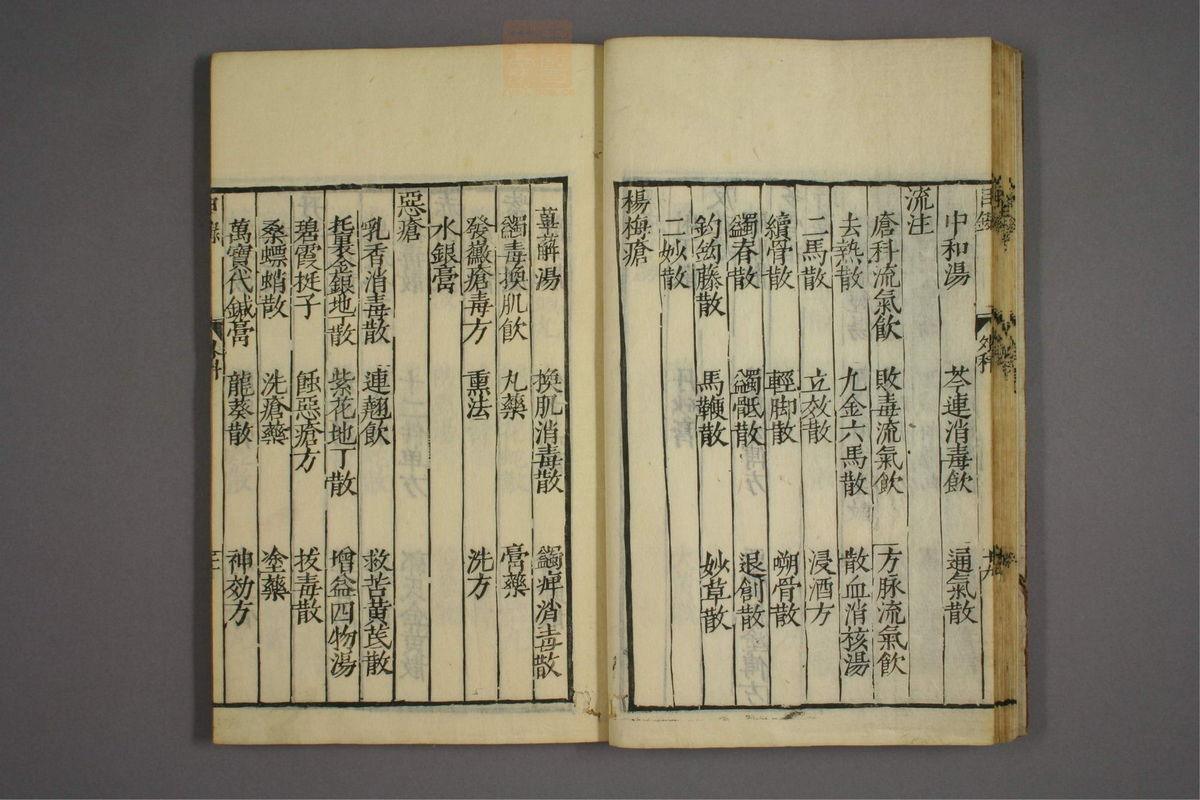 目錄 外科
中和湯 芩連消毒飲 通氣散
流注
瘡科流氣飲 敗毒流氣飲 方脉流氣飲
去熱散 九金六馬散 散血消核湯
二馬散 立效散 浸酒方
續骨散 輕脚散 蝴骨散
蠲春散 蠲骶散 退創散
釣鈎藤散 馬鞭散 妙草散
二妙散
楊梅瘡
萆薢湯 換肌消毒散 蠲痺消毒散
蠲毒換肌飲 丸藥 膏藥
發癥瘡毒方 熏法 洗方
水銀膏
惡瘡
乳香消毒散 連翹飲 救苦黄茋散
托裏金銀地丁散 紫花地丁散 增益四物湯
碧霞挺子 蝕惡瘡方 拔毒散
桑螵蛸散 洗瘡藥 塗藥
萬寶代鍼膏 龍葵散 神効方